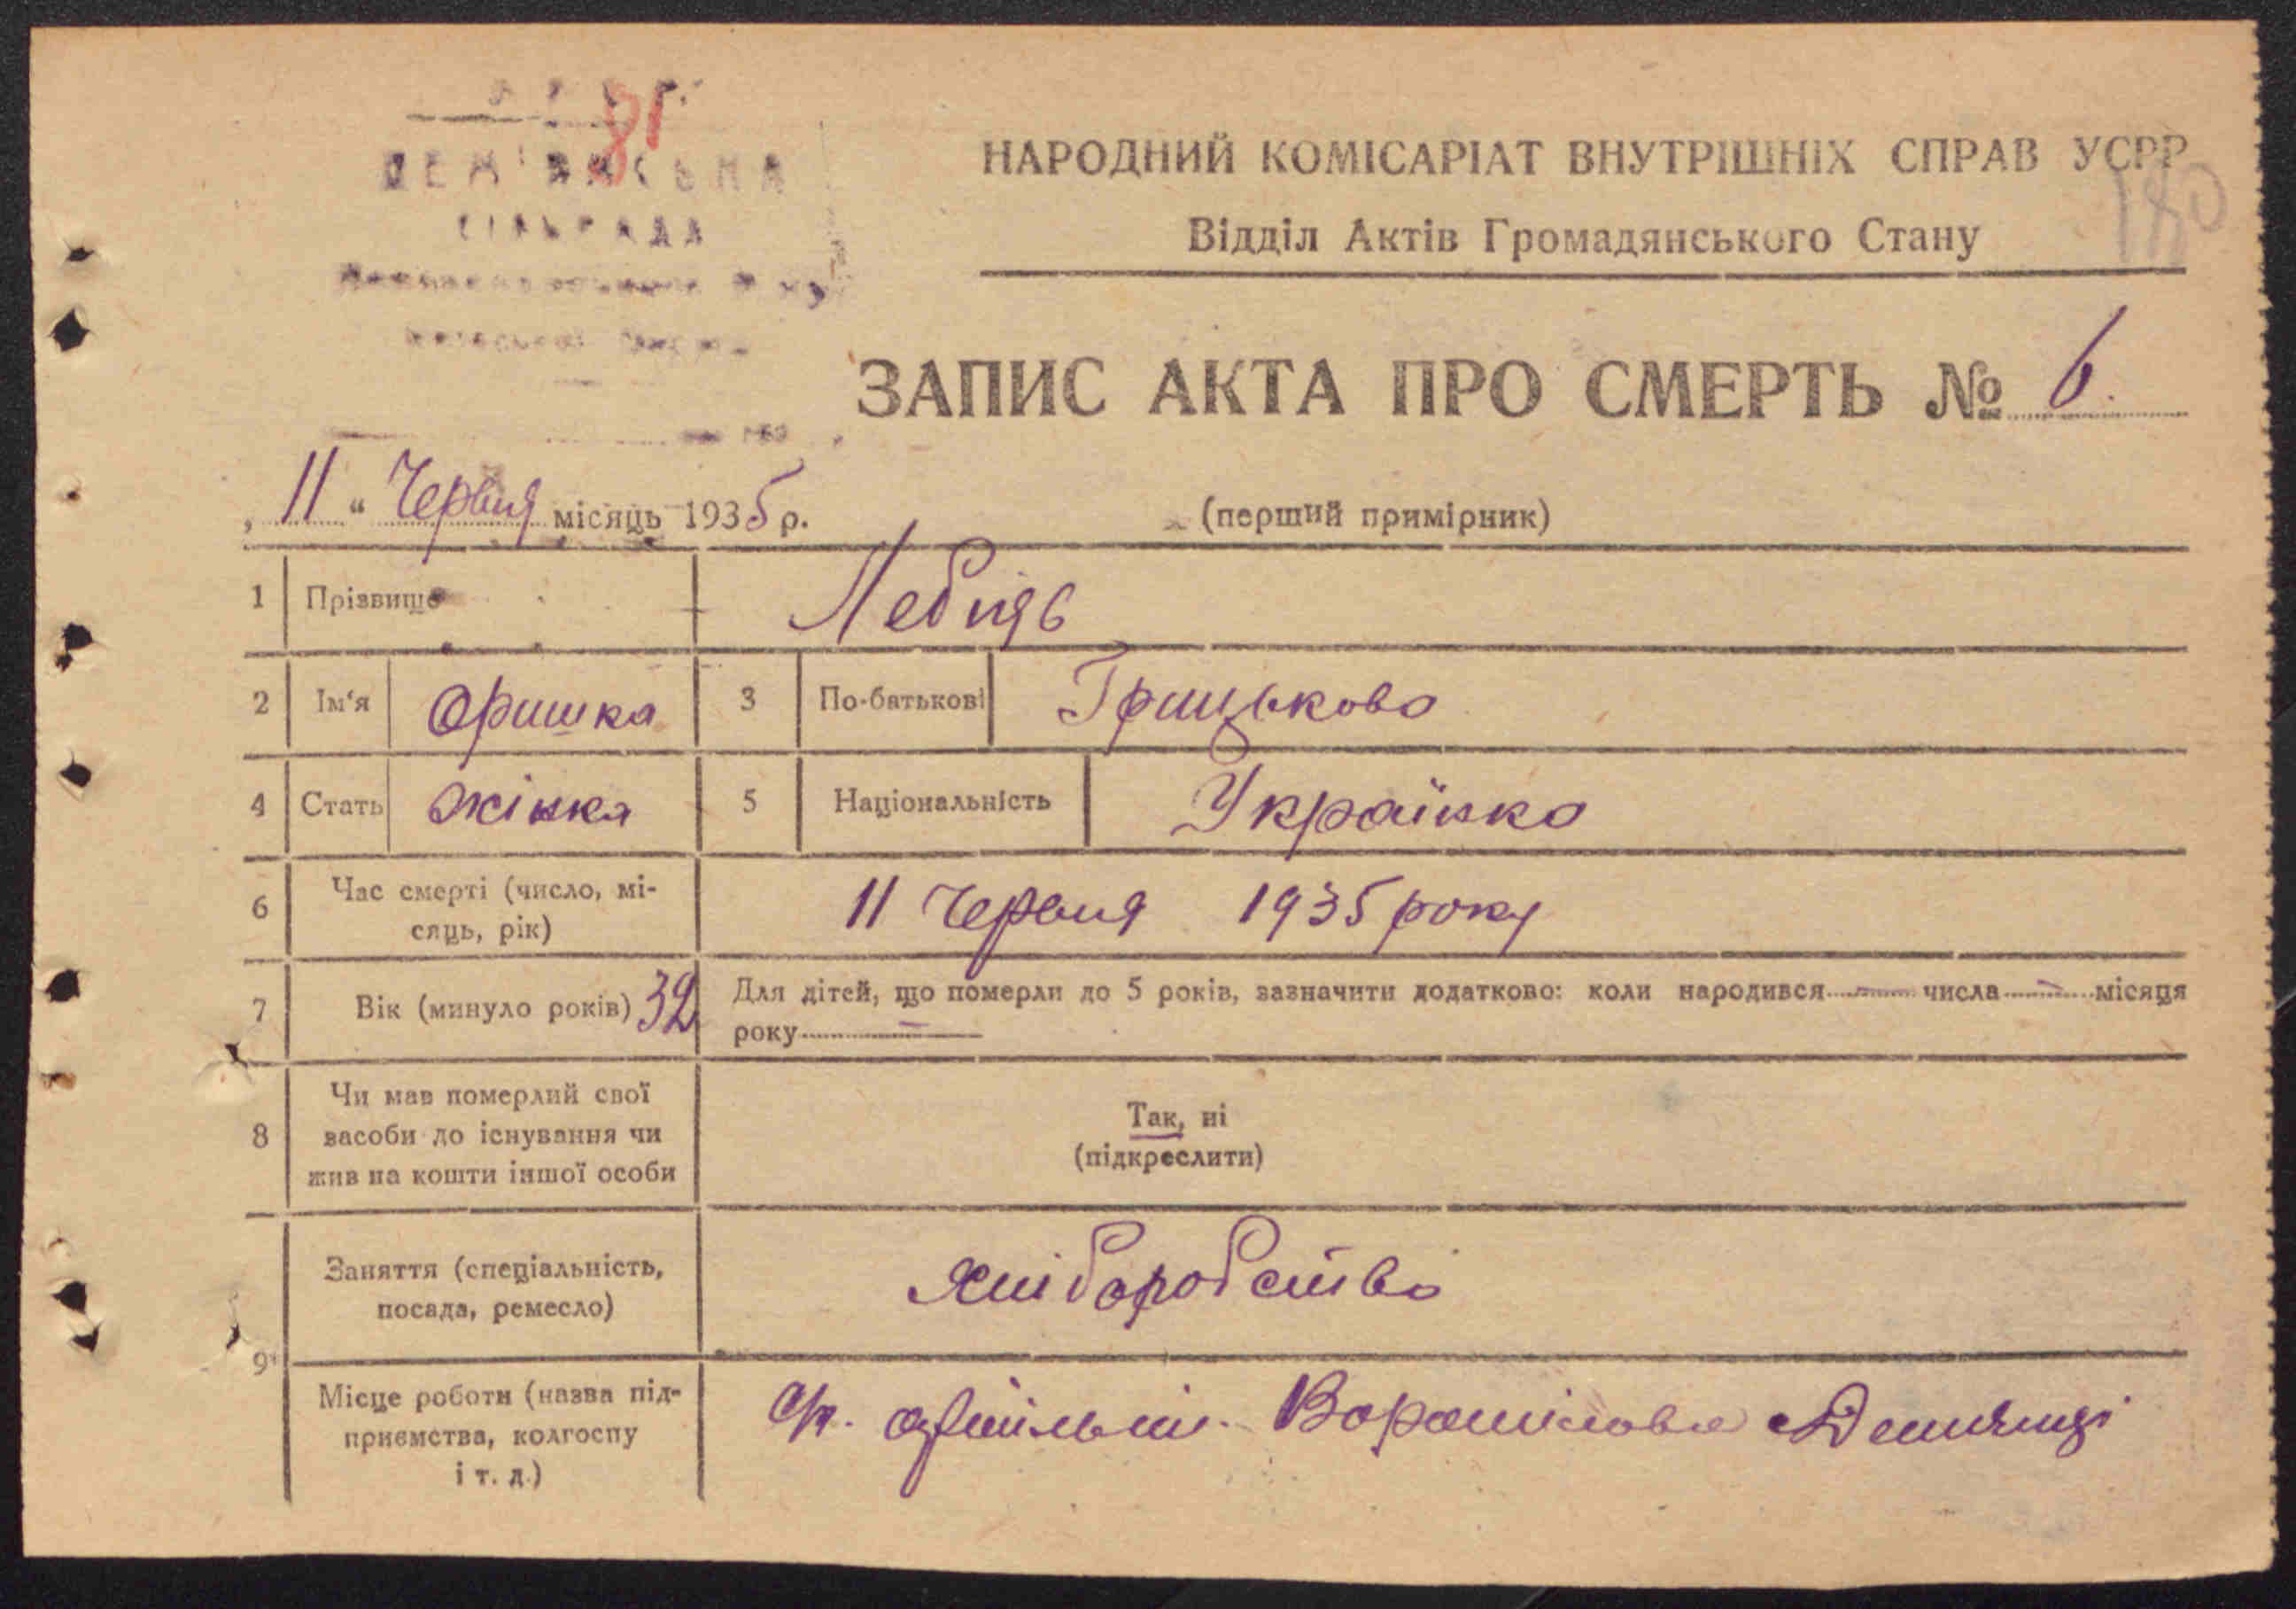 81
ДЕМ'ЯНСЬКА
СІЛЬРАДА
НАРОДНИЙ КОМІСАРІАТ ВНУТРІШНІХ СПРАВ УСРР
180
Відділ Актів Громадянського Стану
ЗАПИС АКТА ПРО СМЕРТЬ № 6.
„ 11 " Червня місяць 1935 р.
(перший примірник)
1 Прізвище Лебидь
2 Ім'я Оришка 3 По-батькові Грицькова
4 Стать жінка 5 Національність Українка
6 Час смерті (число, мі-
сяць, рік) 11 Червня 1935 року
7 Вік (минуло років) 32 Для дітей, що померли до 5 років, зазначити додатково: коли народився — числа — місяця
року —
8 Чи мав померлий свої
засоби до існування чи
жив на кошти іншої особи
Так, ні
(підкреслити)
9 Заняття (спеціальність,
посада, ремесло) хліборобство
Місце роботи (назва під-
приємства, колгоспу
і т. д.)
Ворошилова Демянці